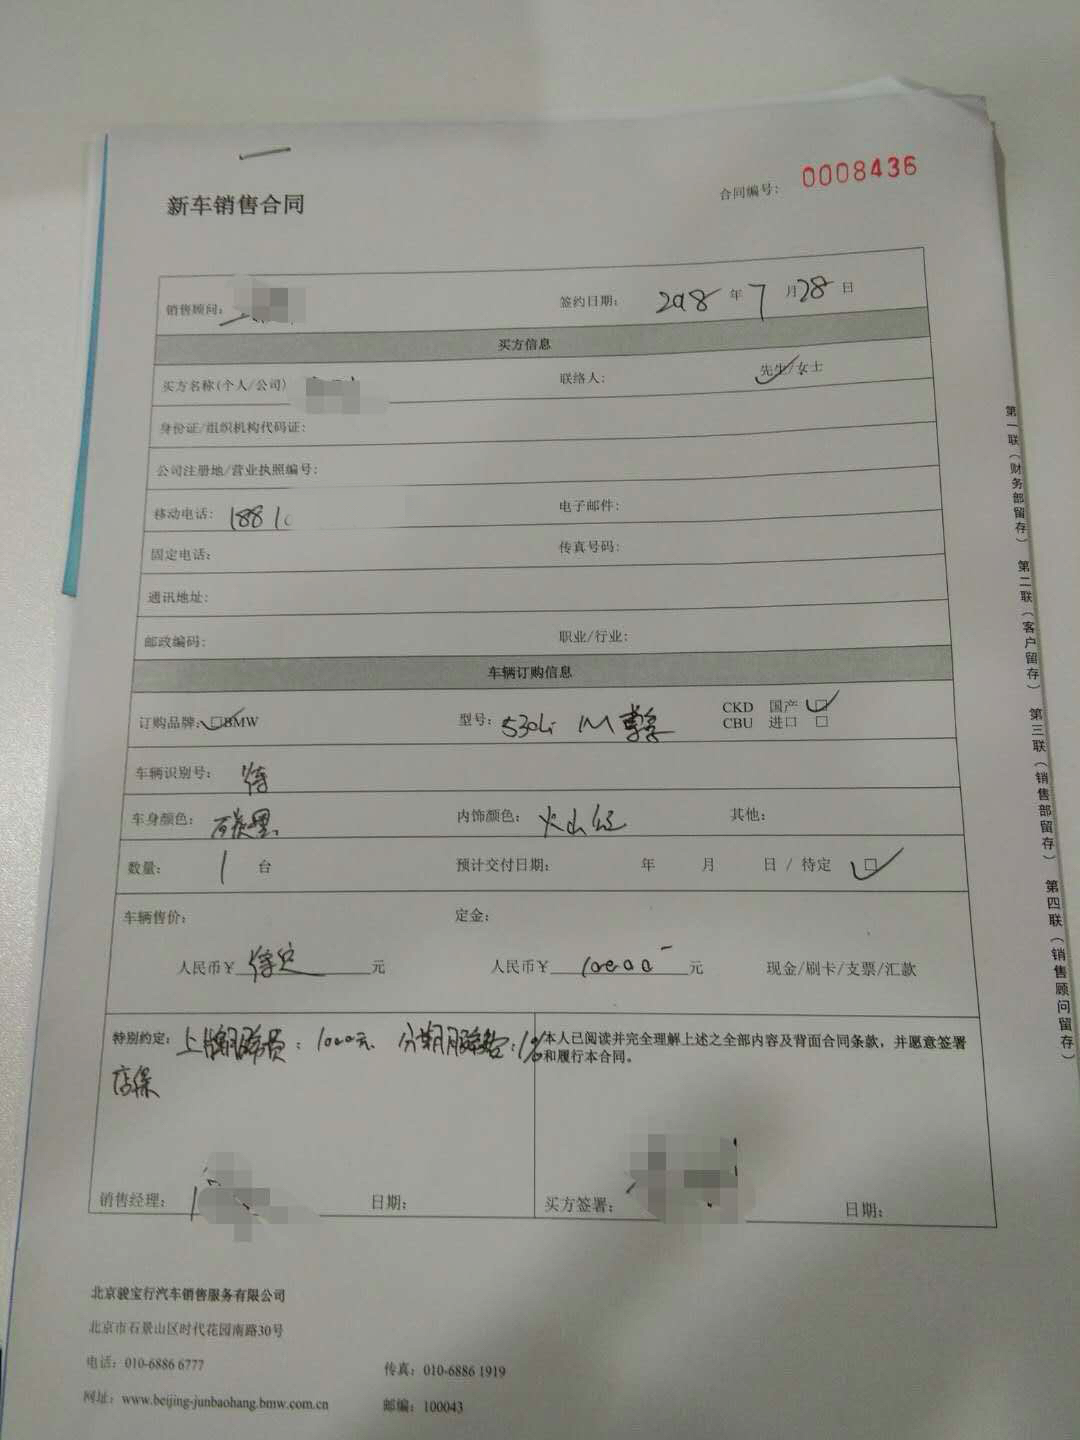 新车销售合同
合同编号: 0008436
销售顾问: 签约日期: 2018 年 7 月 28 日
买方信息
买方名称(个人/公司) 联络人: 先生/女士
身份证/组织机构代码证:
公司注册地/营业执照编号:
移动电话: 1881 电子邮件:
固定电话: 传真号码:
通讯地址:
邮政编码: 职业/行业:
车辆订购信息
订购品牌: □BMW 型号: 530Li M CKD 国产 □
CBU 进口 □
车辆识别号: 待
车身颜色: 碳黑 内饰颜色: 火山红 其他:
数量: 1 台 预计交付日期: 年 月 日 / 待定 □
车辆售价: 定金:
人民币¥ 待定 元 人民币¥ 10000 元 现金/刷卡/支票/汇款
特别约定: 上牌服务费: 1000元 分期服务费: 1%
店保
本人已阅读并完全理解上述之全部内容及背面合同条款，并愿意签署
和履行本合同。
销售经理: 日期: 买方签署: 日期:
第一联(财务部留存) 第二联(客户留存) 第三联(销售部留存) 第四联(销售顾问留存)
北京骏宝行汽车销售服务有限公司
北京市石景山区时代花园南路30号
电话: 010-6886 6777 传真: 010-6886 1919
网址: www.beijing-junbaohang.bmw.com.cn 邮编: 100043